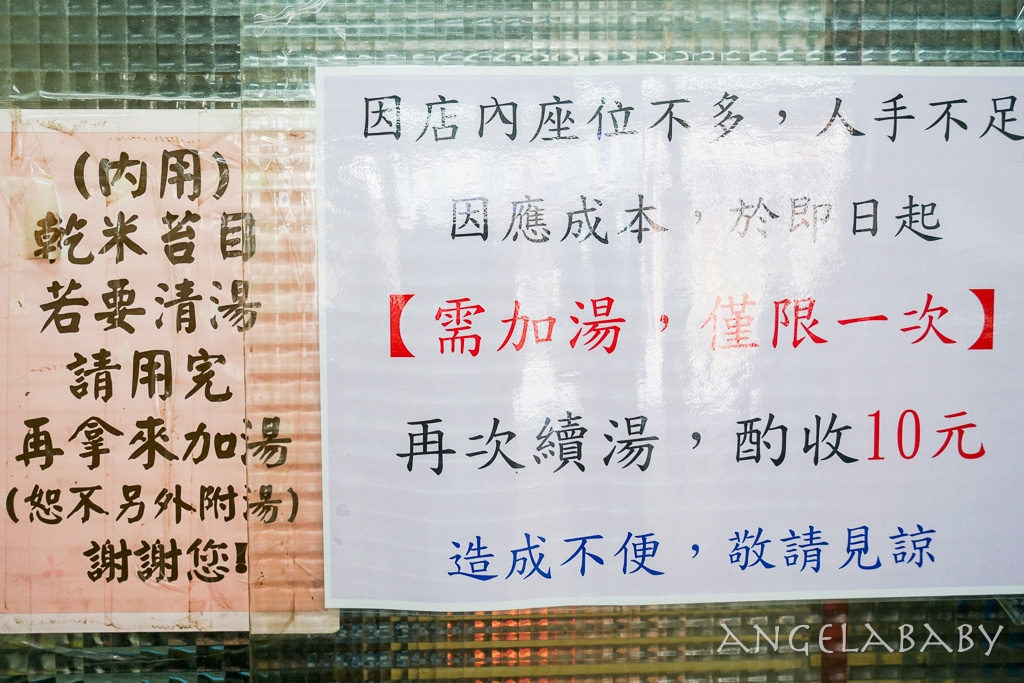 (內用)
乾米苔目
若要清湯
請用完
再拿來加湯
(恕不另外附湯)
謝謝您!
因店內座位不多，人手不足
因應成本，於即日起
【需加湯，僅限一次】
再次續湯，酌收10元
造成不便，敬請見諒
ANGELABABY